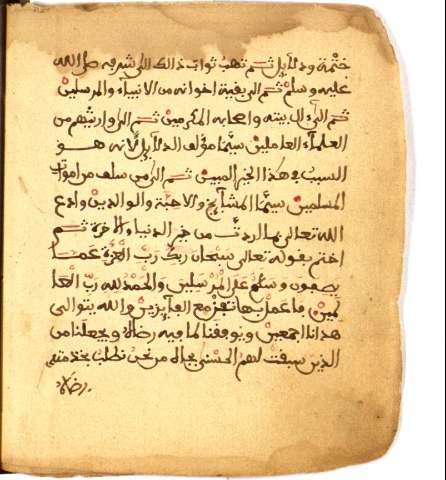 ختمة ودلايل ثم تهب ثواب ذالك اللى شرفه صلى الله
عليه وسلم ثم الى بقية اخوانه من الانبياء والمرسلين
ثم الى ءال بيته واصحابه المكرمين ثم الى وارثيهم من
العلماء العاملين سيما مؤلف الدلايل لانه هو
السبب في هذا الخير المبين ثم الى من سلف من اموات
المسلمين سيما المشايخ والاحبة والوالدين وادع
الله تعالى بما اردت من خير الدنيا والاخرة ثم
اختم بقوله تعالى سبحان ربك رب العزة عما
يصفون وسلم على المرسلين والحمد لله رب العا
لمين فاعمل بها تفز مع الفايزين والله يتولى
هدانا اجمعين ويوفقنا لما فيه رضاه ويجعلنا من
الذين سبقت لهم الحسنى بجاه من نحن نطلب بخدمته
رضاه